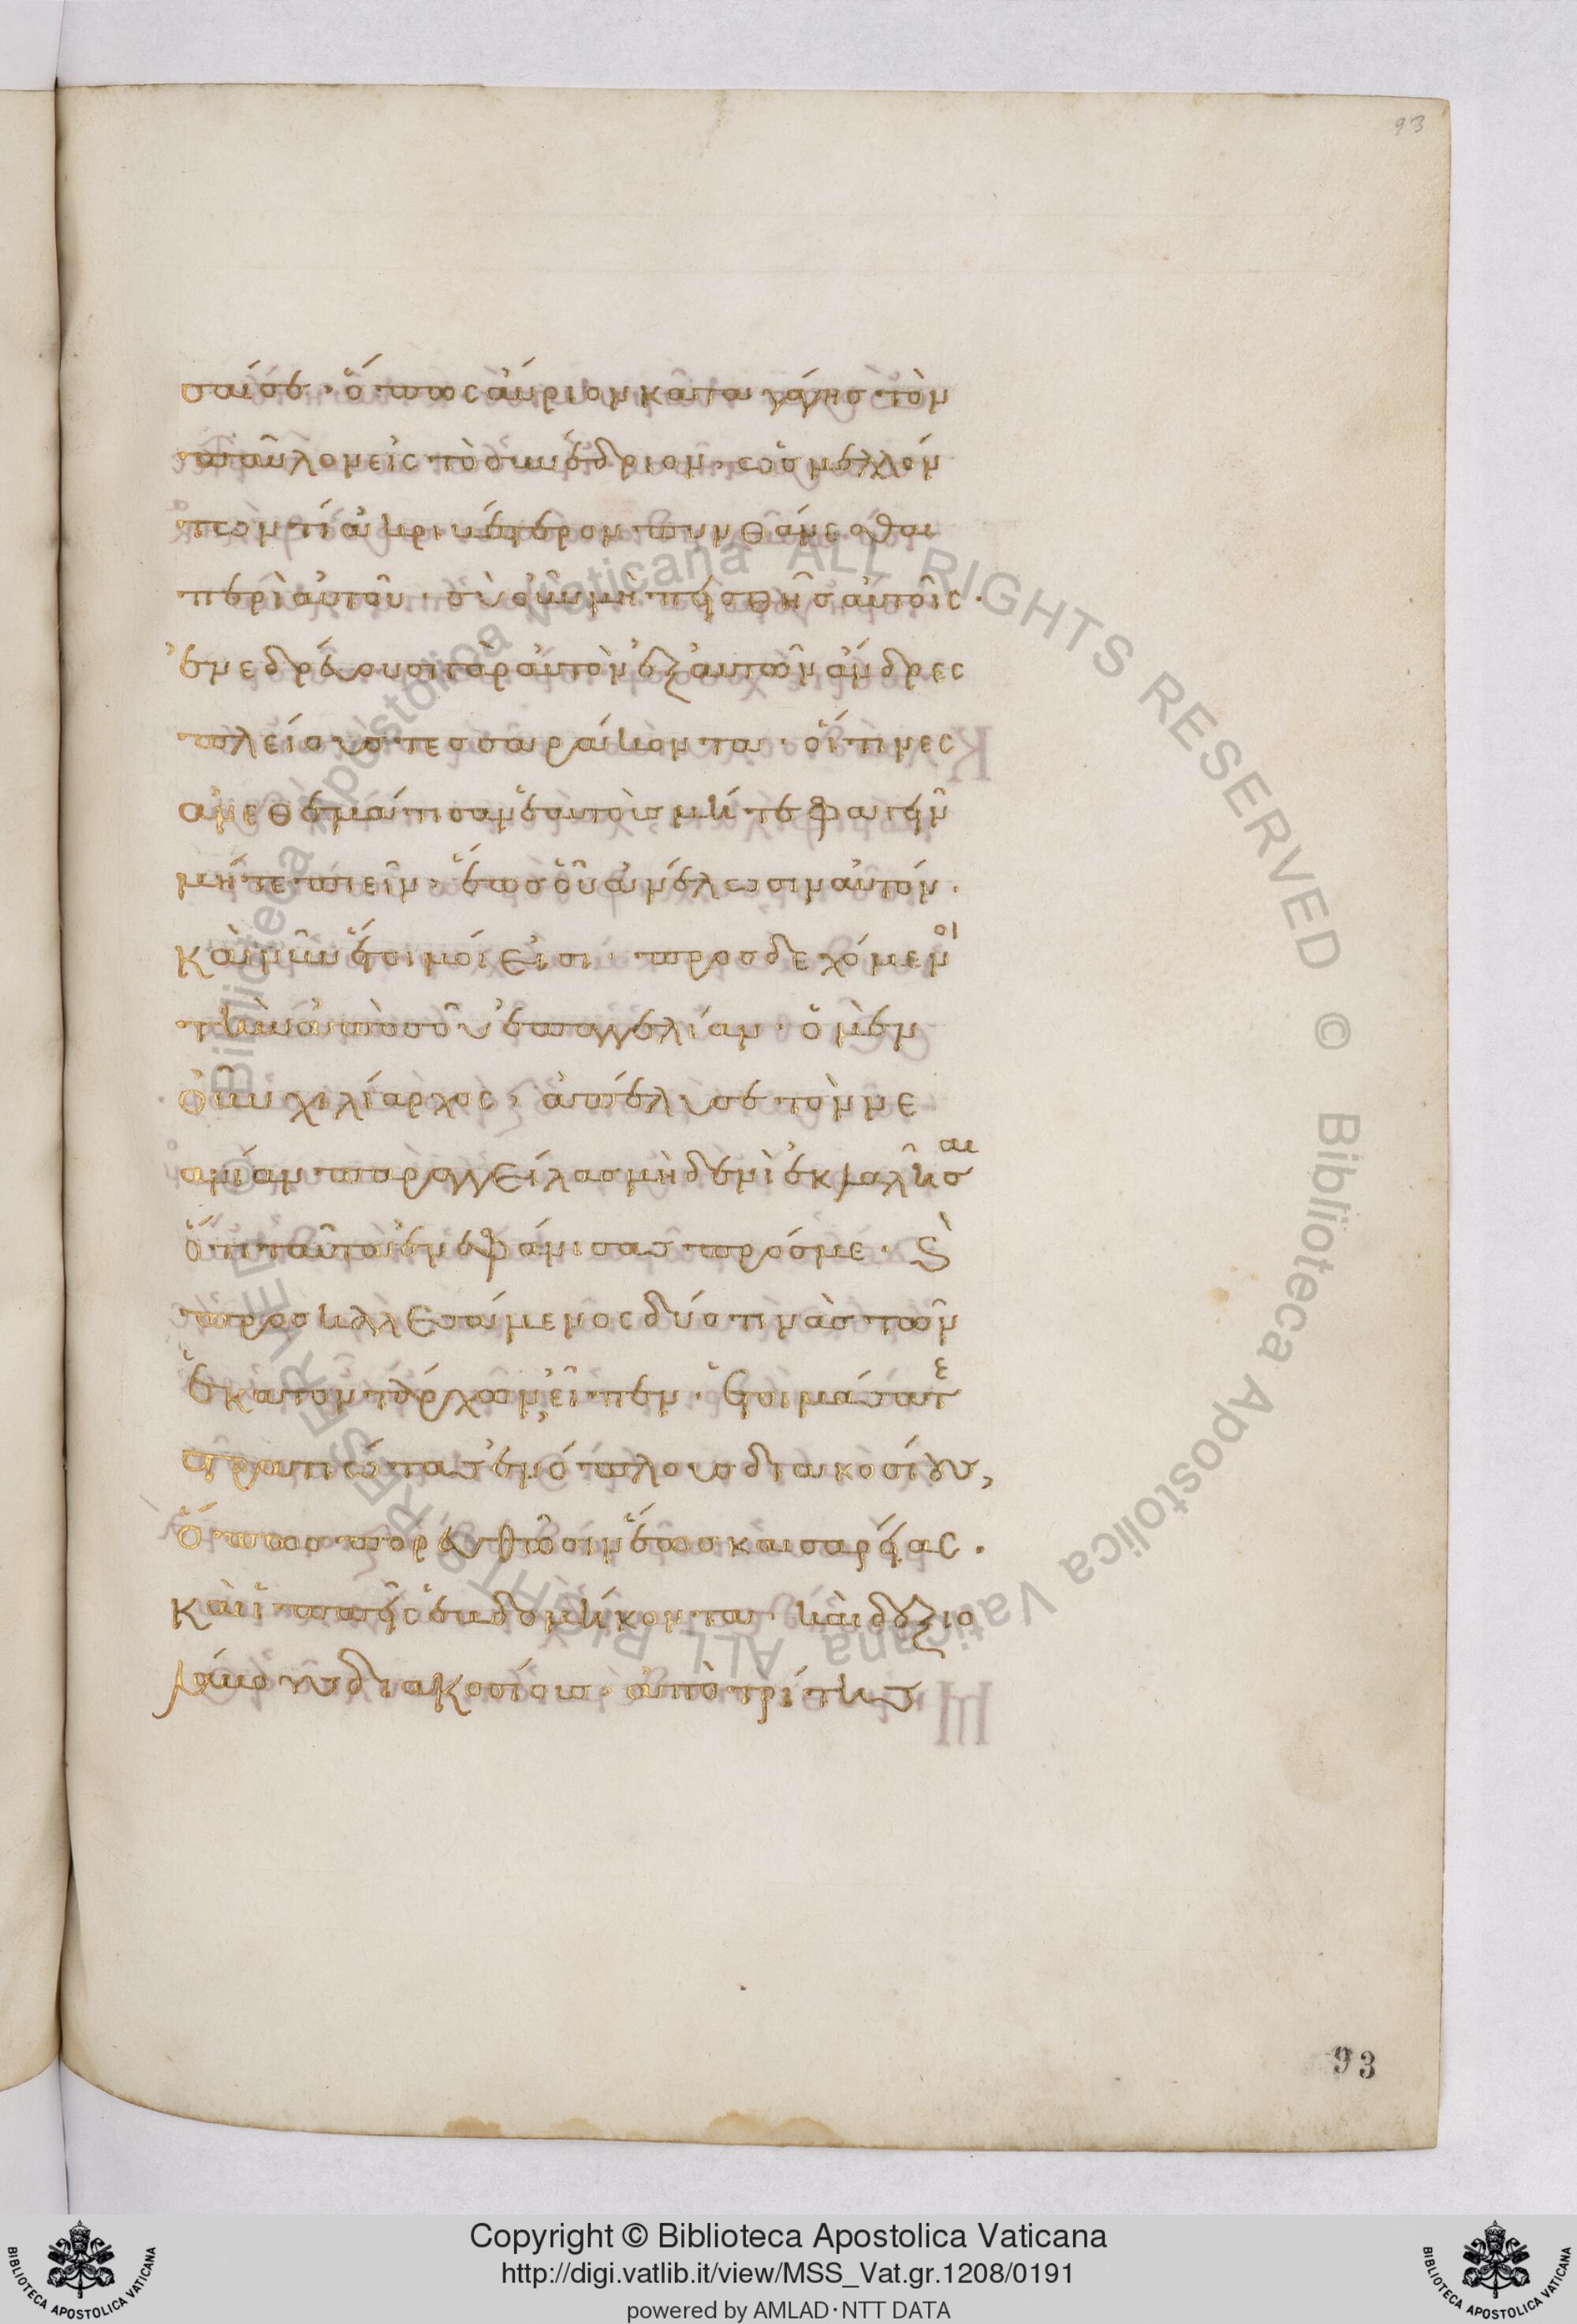 93
σαί σε · ὅπως αὔριον καταγάγης τὸν
παῦλον εἰς τὸ συνέδριον · ὡς μέλλον
τές τι ἀκριβέστερον πυνθάνεσθαι
περὶ αὐτοῦ · σὺ οὖν μὴ πεισθῆς αὐτοῖς ·
ἐνεδρεύουσι γὰρ αὐτὸν ἐξ αὐτῶν ἄνδρες
πλείους τεσσαράκοντα · οἵτινες
ἀνεθεμάτισαν ἑαυτοὺς μήτε φαγεῖν
μήτε πιεῖν · ἕως οὗ ἀνέλωσιν αὐτόν ·
καὶ νῦν ἕτοιμοί εἰσι · προσδεχόμενοι
τὴν ἀπὸ σοῦ ἐπαγγελίαν · ὁ μὲν
οὖν χιλίαρχος · ἀπέλυσε τὸν νε
ανίαν παραγγείλας μηδενὶ ἐκλαλῆσαι
ὅτι ταῦτα ἐνεφάνισας πρός με · Ϗ̀
προσκαλεσάμενος δύο τινὰς τῶν
ἑκατοντάρχων, εἶπεν · ἑτοιμάσατε
στρατιώτας ἐνόπλους διακοσίους,
ὅπως πορευθῶσιν ἕως καισαρείας ·
καὶ ἱππεῖς ἑβδομήκοντα · καὶ δεξιο
λάβους διακοσίους · ἀπὸ τρίτης
93
Biblioteca Apostolica Vaticana ALL RIGHTS RESERVED © Biblioteca Apostolica Vaticana ALL RIGHTS RESERVED ©
Copyright © Biblioteca Apostolica Vaticana
http://digi.vatlib.it/view/MSS_Vat.gr.1208/0191
powered by AMLAD·NTT DATA
BIBLIOTECA APOSTOLICA VATICANA
BIBLIOTECA APOSTOLICA VATICANA